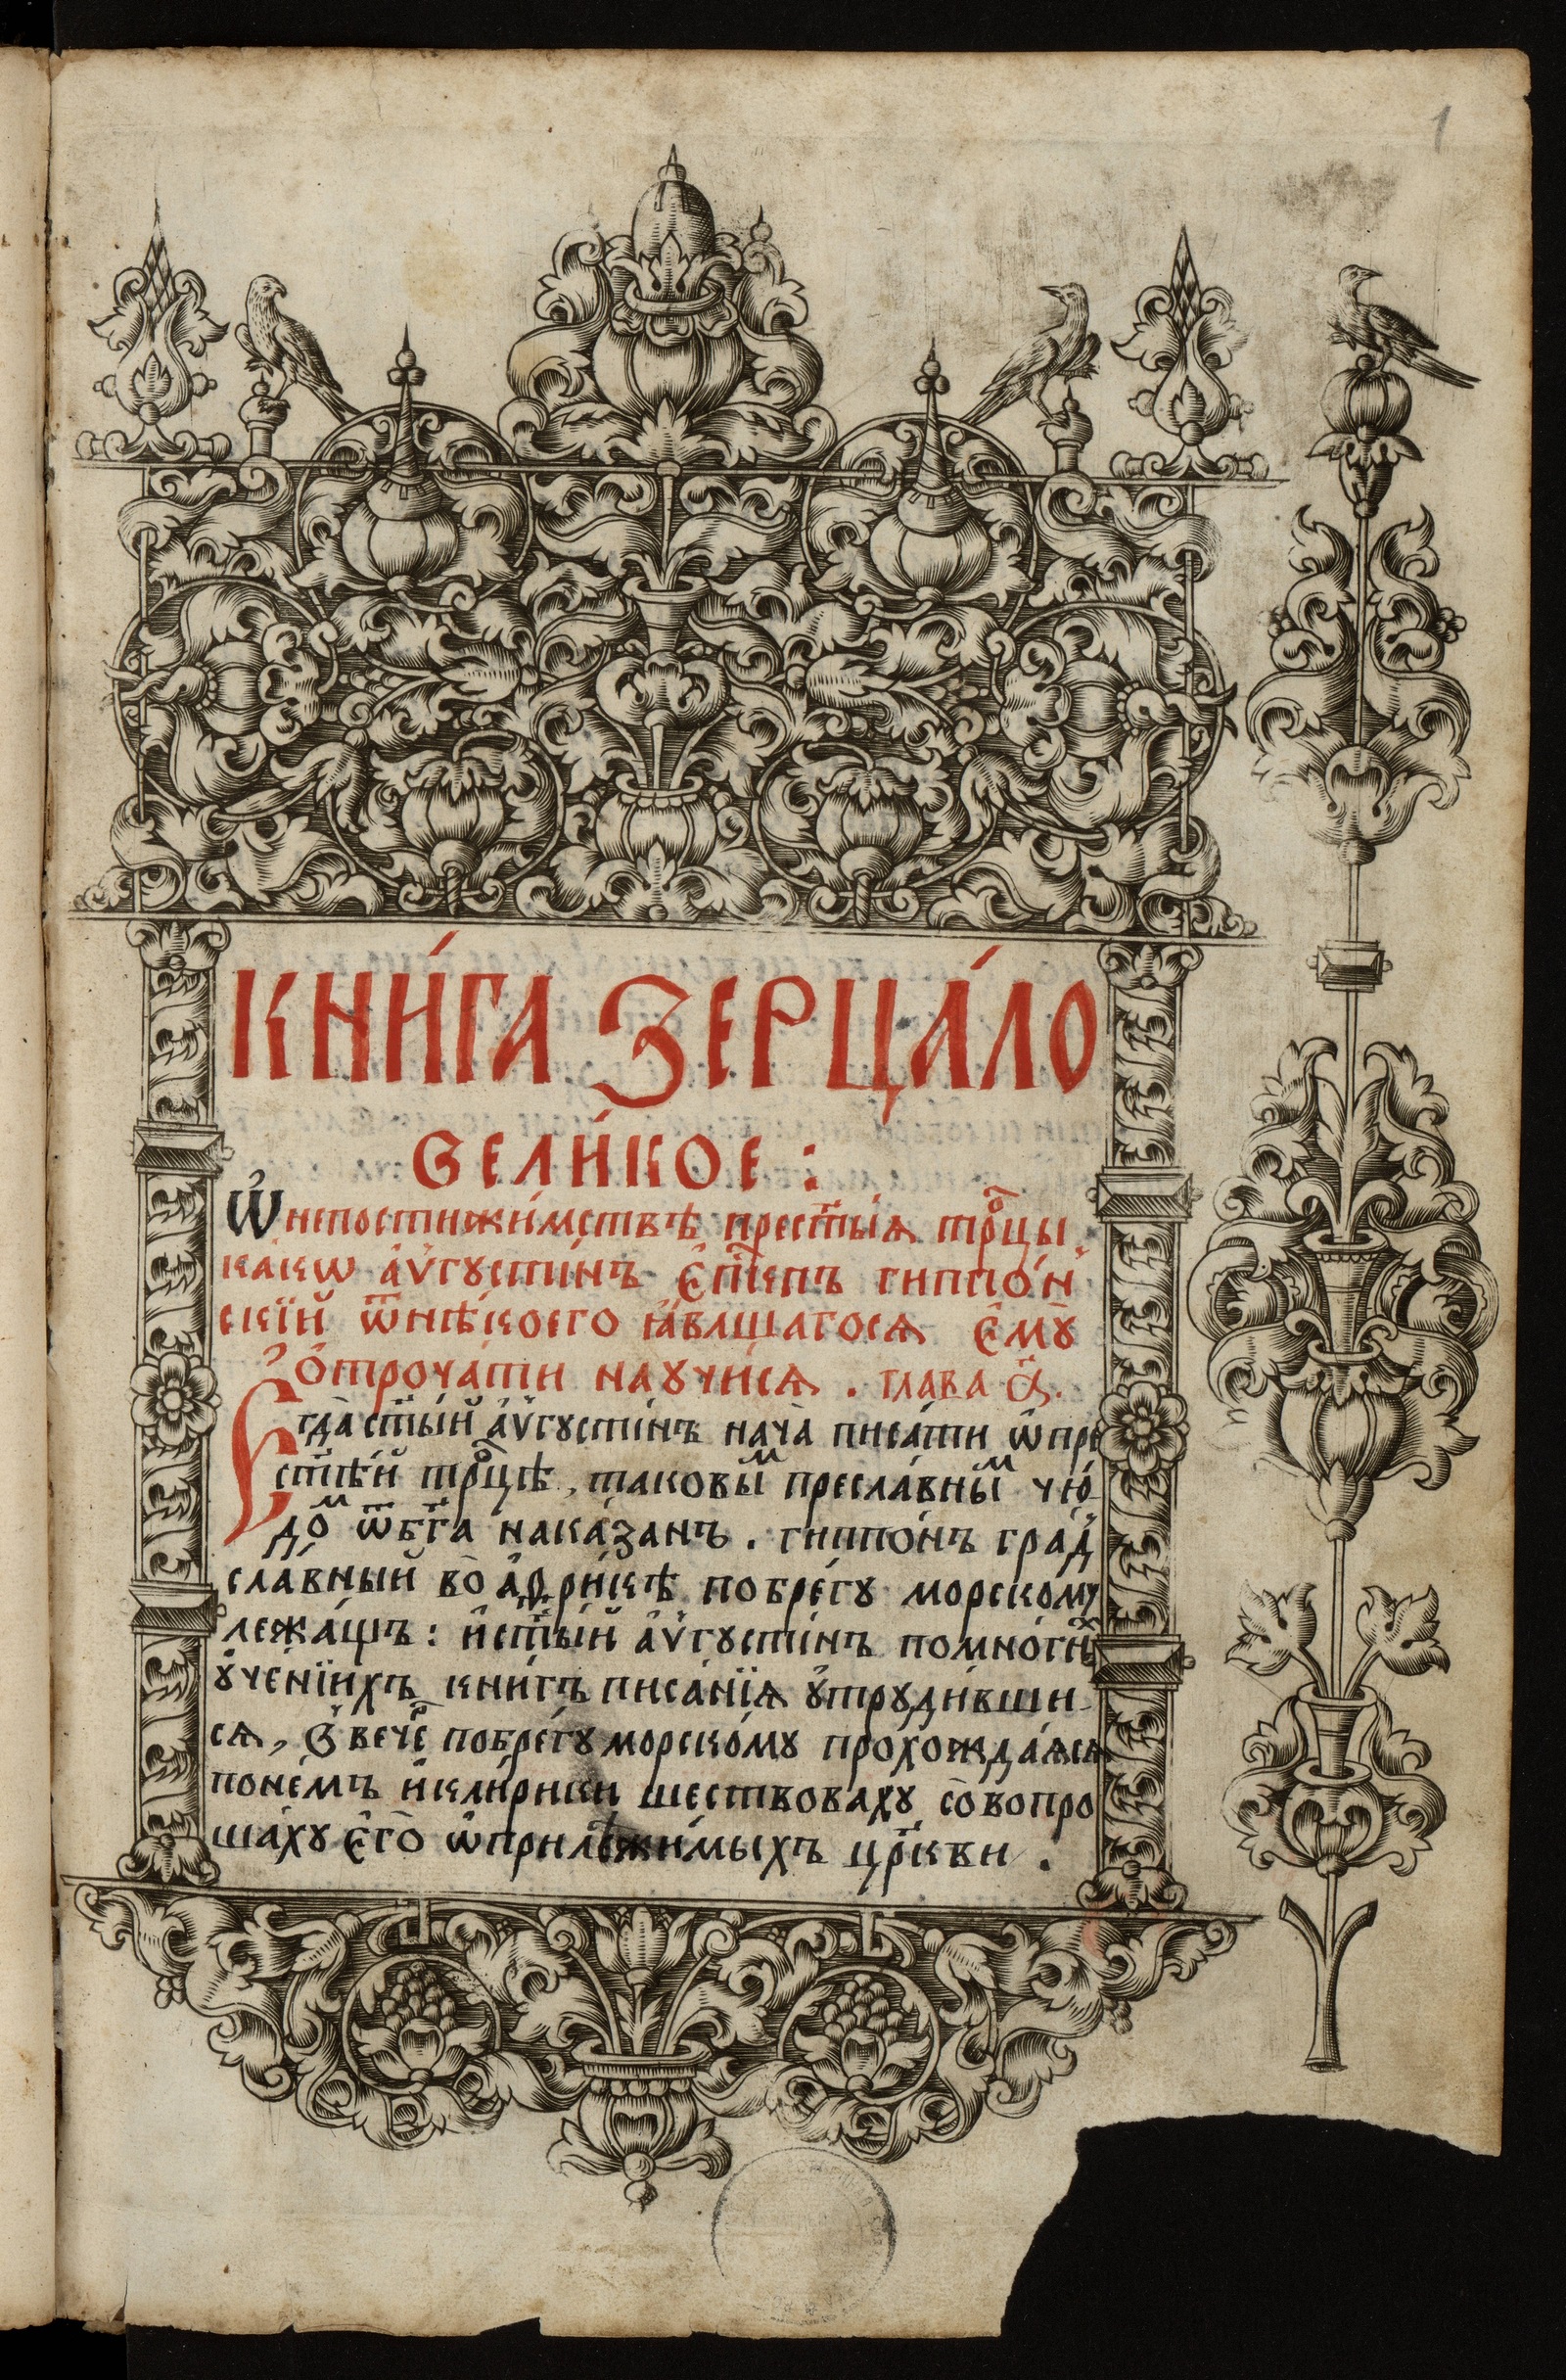 1
КНИ́ГА ЗЕРЦА́ЛО
ВЕЛИ́КОЕ :
Ѿ непостижи́мствѣ прест҃ы́ѧ трⷪ҇цы,
ка́кѡ а҆ѵгꙋсти́нъ є҆пⷭ҇кпъ гиппо́н
скїй ѿ нѣ́коегѡ ꙗ҆́влшагосѧ є҆мꙋ̀
ѻ҆троча́ти наꙋчи́сѧ . глава а҃.
Є҆гда̀ ст҃ы́й а҆ѵгꙋсти́нъ нача̀ писа́ти ѡ҆ пре
ст҃ѣ́й трⷪ҇цѣ, таковыⷨ пресла́вныⷨ чю́
доⷨ ѿ бг҃а нака́занъ . гиппо́нъ гра́д
сла́вный во̀ а҆́фри́кѣ по бре́гꙋ морскомꙋ
лежа́щъ : и҆ ст҃ы́й а҆ѵгꙋсти́нъ по мно́гиⷯ
ꙋ҆че́нїихъ кни́гъ писа́нїѧ ꙋ҆трꙋди́вши
сѧ, в вечеⷬ҇ по бре́гꙋ морско́мꙋ прохожда́ѧсѧ
по не́мъ и҆ кли́рики шествовахꙋ со̀ вопро
ша́хꙋ є҆го̀ ѡ҆ прилѣжи́мыхъ цр҃кви .